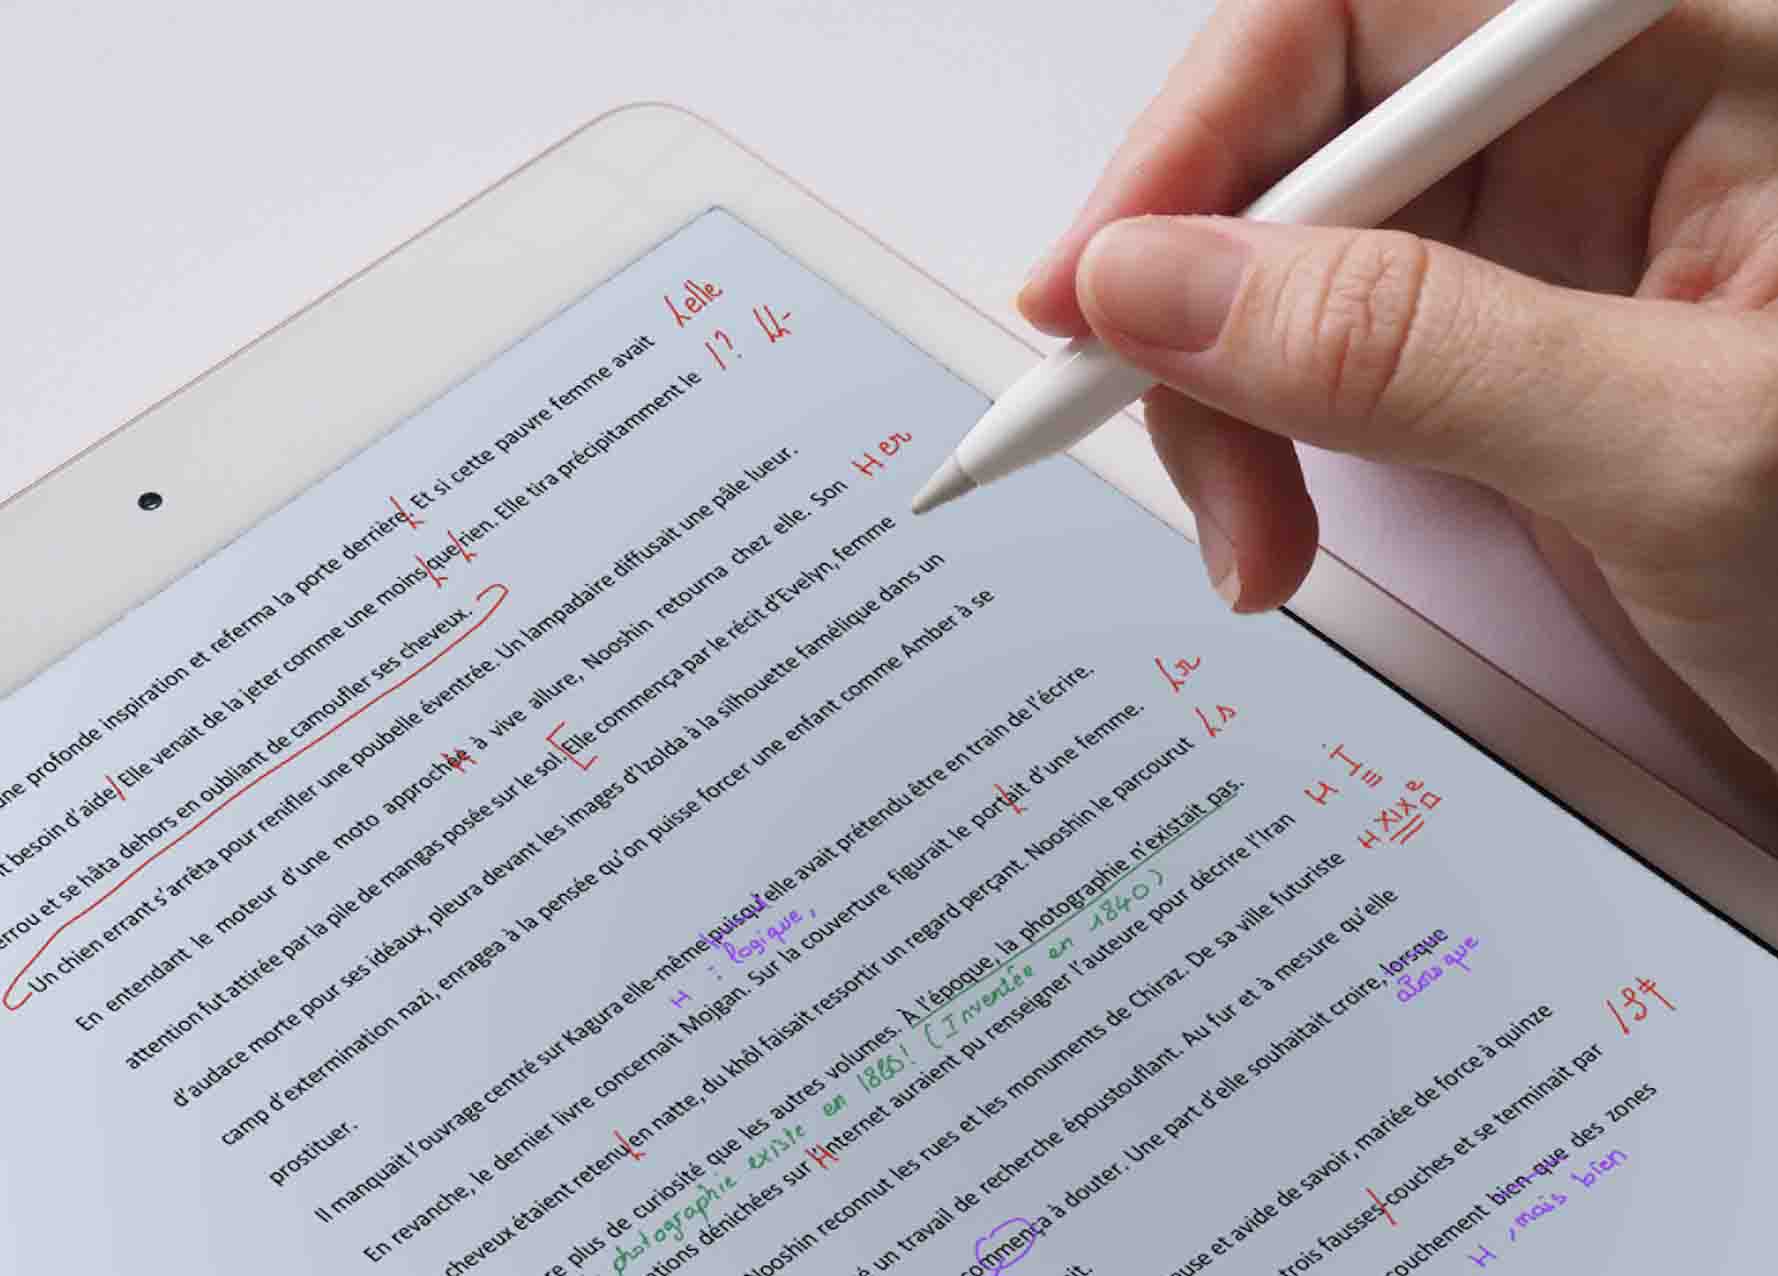 une profonde inspiration et referma la porte derrière. Et si cette pauvre femme avait Lelle
t besoin d'aide/Elle venait de la jeter comme une moins que rien. Elle tira précipitamment le /?
errou et se hâta dehors en oubliant de camoufler ses cheveux.
Un chien errant s'arrêta pour renifler une poubelle éventrée. Un lampadaire diffusait une pâle lueur.
En entendant le moteur d'une moto approchée à vive allure, Nooshin retourna chez elle. Son H er
attention fut attirée par la pile de mangas posée sur le sol. [Elle commença par le récit d'Evelyn, femme
d'audace morte pour ses idéaux, pleura devant les images d'Izolda à la silhouette famélique dans un
camp d'extermination nazi, enragea à la pensée qu'on puisse forcer une enfant comme Amber à se
prostituer.
Il manquait l'ouvrage centré sur Kagura elle-même puisqu'elle avait prétendu être en train de l'écrire.
H : logique,
En revanche, le dernier livre concernait Mojgan. Sur la couverture figurait le portait d'une femme. Lr
cheveux étaient retenu en natte, du khôl faisait ressortir un regard perçant. Nooshin le parcourut Ls
re plus de curiosité que les autres volumes. À l'époque, la photographie n'existait pas.
photographie existe en 1880! (Inventée en 1840)
ations dénichées sur Internet auraient pu renseigner l'auteure pour décrire l'Iran H I
Nooshin reconnut les rues et les monuments de Chiraz. De sa ville futuriste H XIXe
é un travail de recherche époustouflant. Au fur et à mesure qu'elle
ommença à douter. Une part d'elle souhaitait croire, lorsque
alors que
it.
use et avide de savoir, mariée de force à quinze
trois fausses couches et se terminait par
couchement bien que des zones
H , mais bien